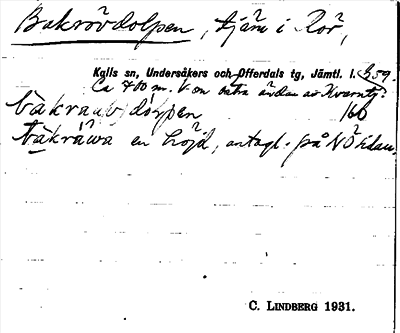 Bakrövdolpen, tjärn i Rör,
Kalls sn, Undersåkers och Offerdals tg, Jämtl. l. 359.
Ca 400 m. V. om östra ändan av Kvarntj.
bakrauvdolpen 166
bakräuva en höjd, antagl. på NÖ sidan.
C. LINDBERG 1931.